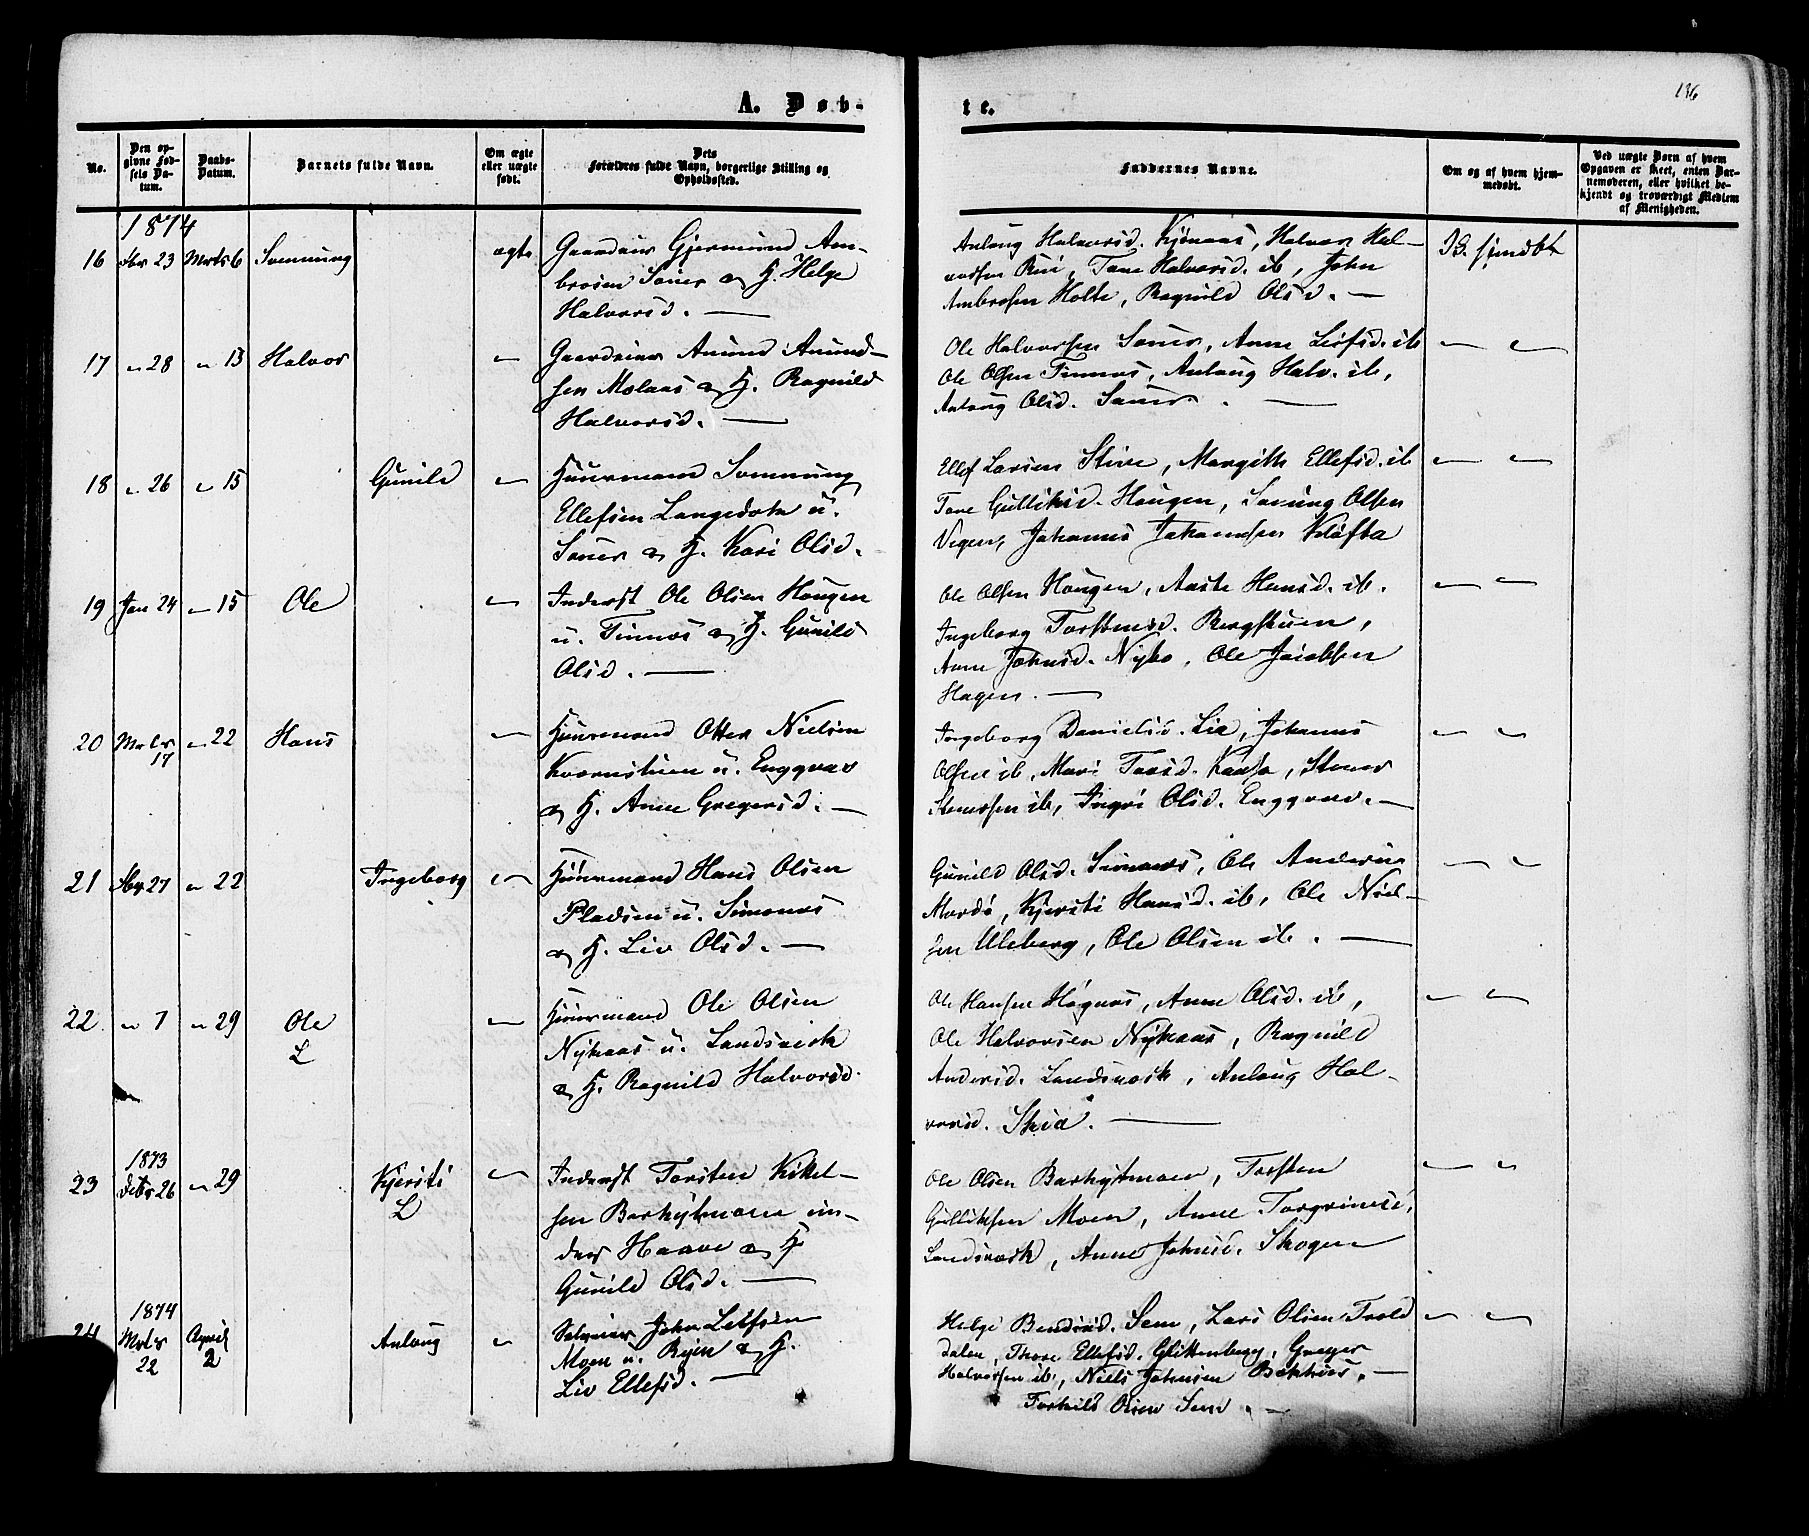 136
A. Døb-
te.
No.
Den op-
givne Fød-
sels Da-
tum.
Daabs-
Datum.
Barnets fulde Navn.
Om ægte
eller uægte
født.
Dets
Forældres fulde Navn, borgerlige Stilling og
Opholdssted.
Faddernes Navne.
Om og af hvem hjem-
medøbt.
Ved uægte Børn af hvem
Opgaven er skeet, enten Bar-
nemoderen, eller hvilket be-
kjendt og troværdigt Medlem
af Menigheden.
1874
16 Fbr 23 Mrts 6 Sommung ægte
Gaardeier Gjermund Am-
brosen Sauer & H. Helge
Halvorsd. —
Anlaug Halvorsd. Kjønaas, Halvor Hal-
vorsen Rui, Tone Halvorsd. ib, John
Ambrosen Holte, Ragnild Olsd. —
17 " 28 " 13 Halvor "
Gaardeier Anund Anund-
sen Molaas & H. Ragnild
Halvorsd. —
Ole Halvorsen Sauer, Anne Leifsd. ib
Ole Olsen Tinnes, Anlaug Halv. ib,
Anlaug Olsd. Sauer. —
18 " 26 " 15 Gunild "
Huusmand Sommung
Ellefsen Langedok u.
Sauer & H. Kari Olsd.
Ellef Larsen Stive, Margith Ellefsd. ib
Tone Gulliksd. Haugen, Sommung Olsen
Vegen, Johannes Johannsen Kløfta
19 Jan 24 " 15 Ole "
Inderst Ole Olsen Haugen
u. Tinnes & H. Gunild
Olsd. —
Ole Olsen Haugen, Aaste Hansd. ib.
Ingeborg Torstensd. Bergstuen,
Anne Johnsd. Nybo, Ole Jacobsen
Hagen. —
20 Mrts 17 " 22 Hans "
Huusmand Otter Nielsen
Kvernstuen u. Enggrav
& H. Anne Gregersd. —
Ingeborg Danielsd. Lie, Johannes
Olsen ib, Mari Torsd. Kaasa, Stener
Stenersen ib, Ingri Olsd. Enggrav. —
21 Fbr 27 " 22 Ingeborg "
Huusmand Hans Olsen
Pladsen u. Simones
& H. Liv Olsd. —
Gunild Olsd. Simones, Ole Andersen
Mordø, Kjersti Hansd. ib, Ole Niel-
sen Uleberg, Ole Olsen ib. —
22. " 7 " 29 Ole "
L
Huusmand Ole Olsen
Nykaas u. Landsverk
& H. Ragnild Halvorsd.
Ole Hansen Høgnes, Anne Olsd. ib,
Ole Halvorsen Nykaas, Ragnild
Andersd. Landsverk, Anlaug Hal-
vorsd. Skua. —
23 1873 Debr 26 " 29 Kjersti "
L
Inderst Torsten Kittel-
sen Barkytmoen un-
der Haave & H
Gunild Olsd. —
Ole Olsen Barkytmoen, Torsten
Gulliksen Moen, Anne Torgrimsd.
Landsverk, Anne Johnsd. Skogen
24 1874 Mrts 22 April 2 Anlaug "
Selveier John Leifsen
Moen u. Bøen & H.
Liv Ellefsd. —
Helge Bendixd. Sem, Lars Olsen Trold
dalen, Thore Ellefsd. Glittenberg, Greger
Halvorsen ib, Niels Johnsen Bakhus, —
Torkild Olsen Sem. —